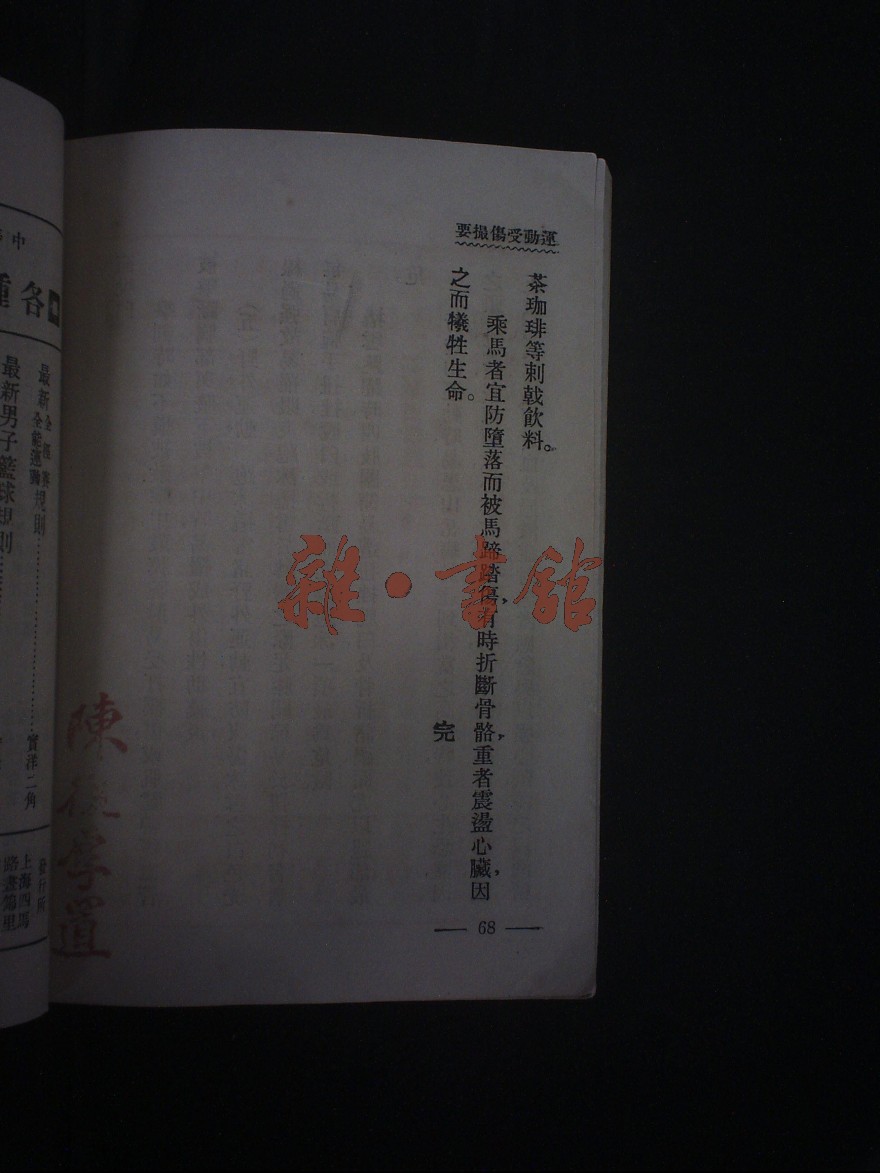 要撮傷受動運
茶珈琲等刺戟飲料。
乘馬者宜防墮落而被馬蹄踏傷,有時折斷骨骼,重者震盪心臟,因
之而犧牲生命。
完
— 68 —
雜·書館
中
各種
最新全能運動規則
最新男子籃球規則
實洋二角
發行所
上海四馬
路畫錦里